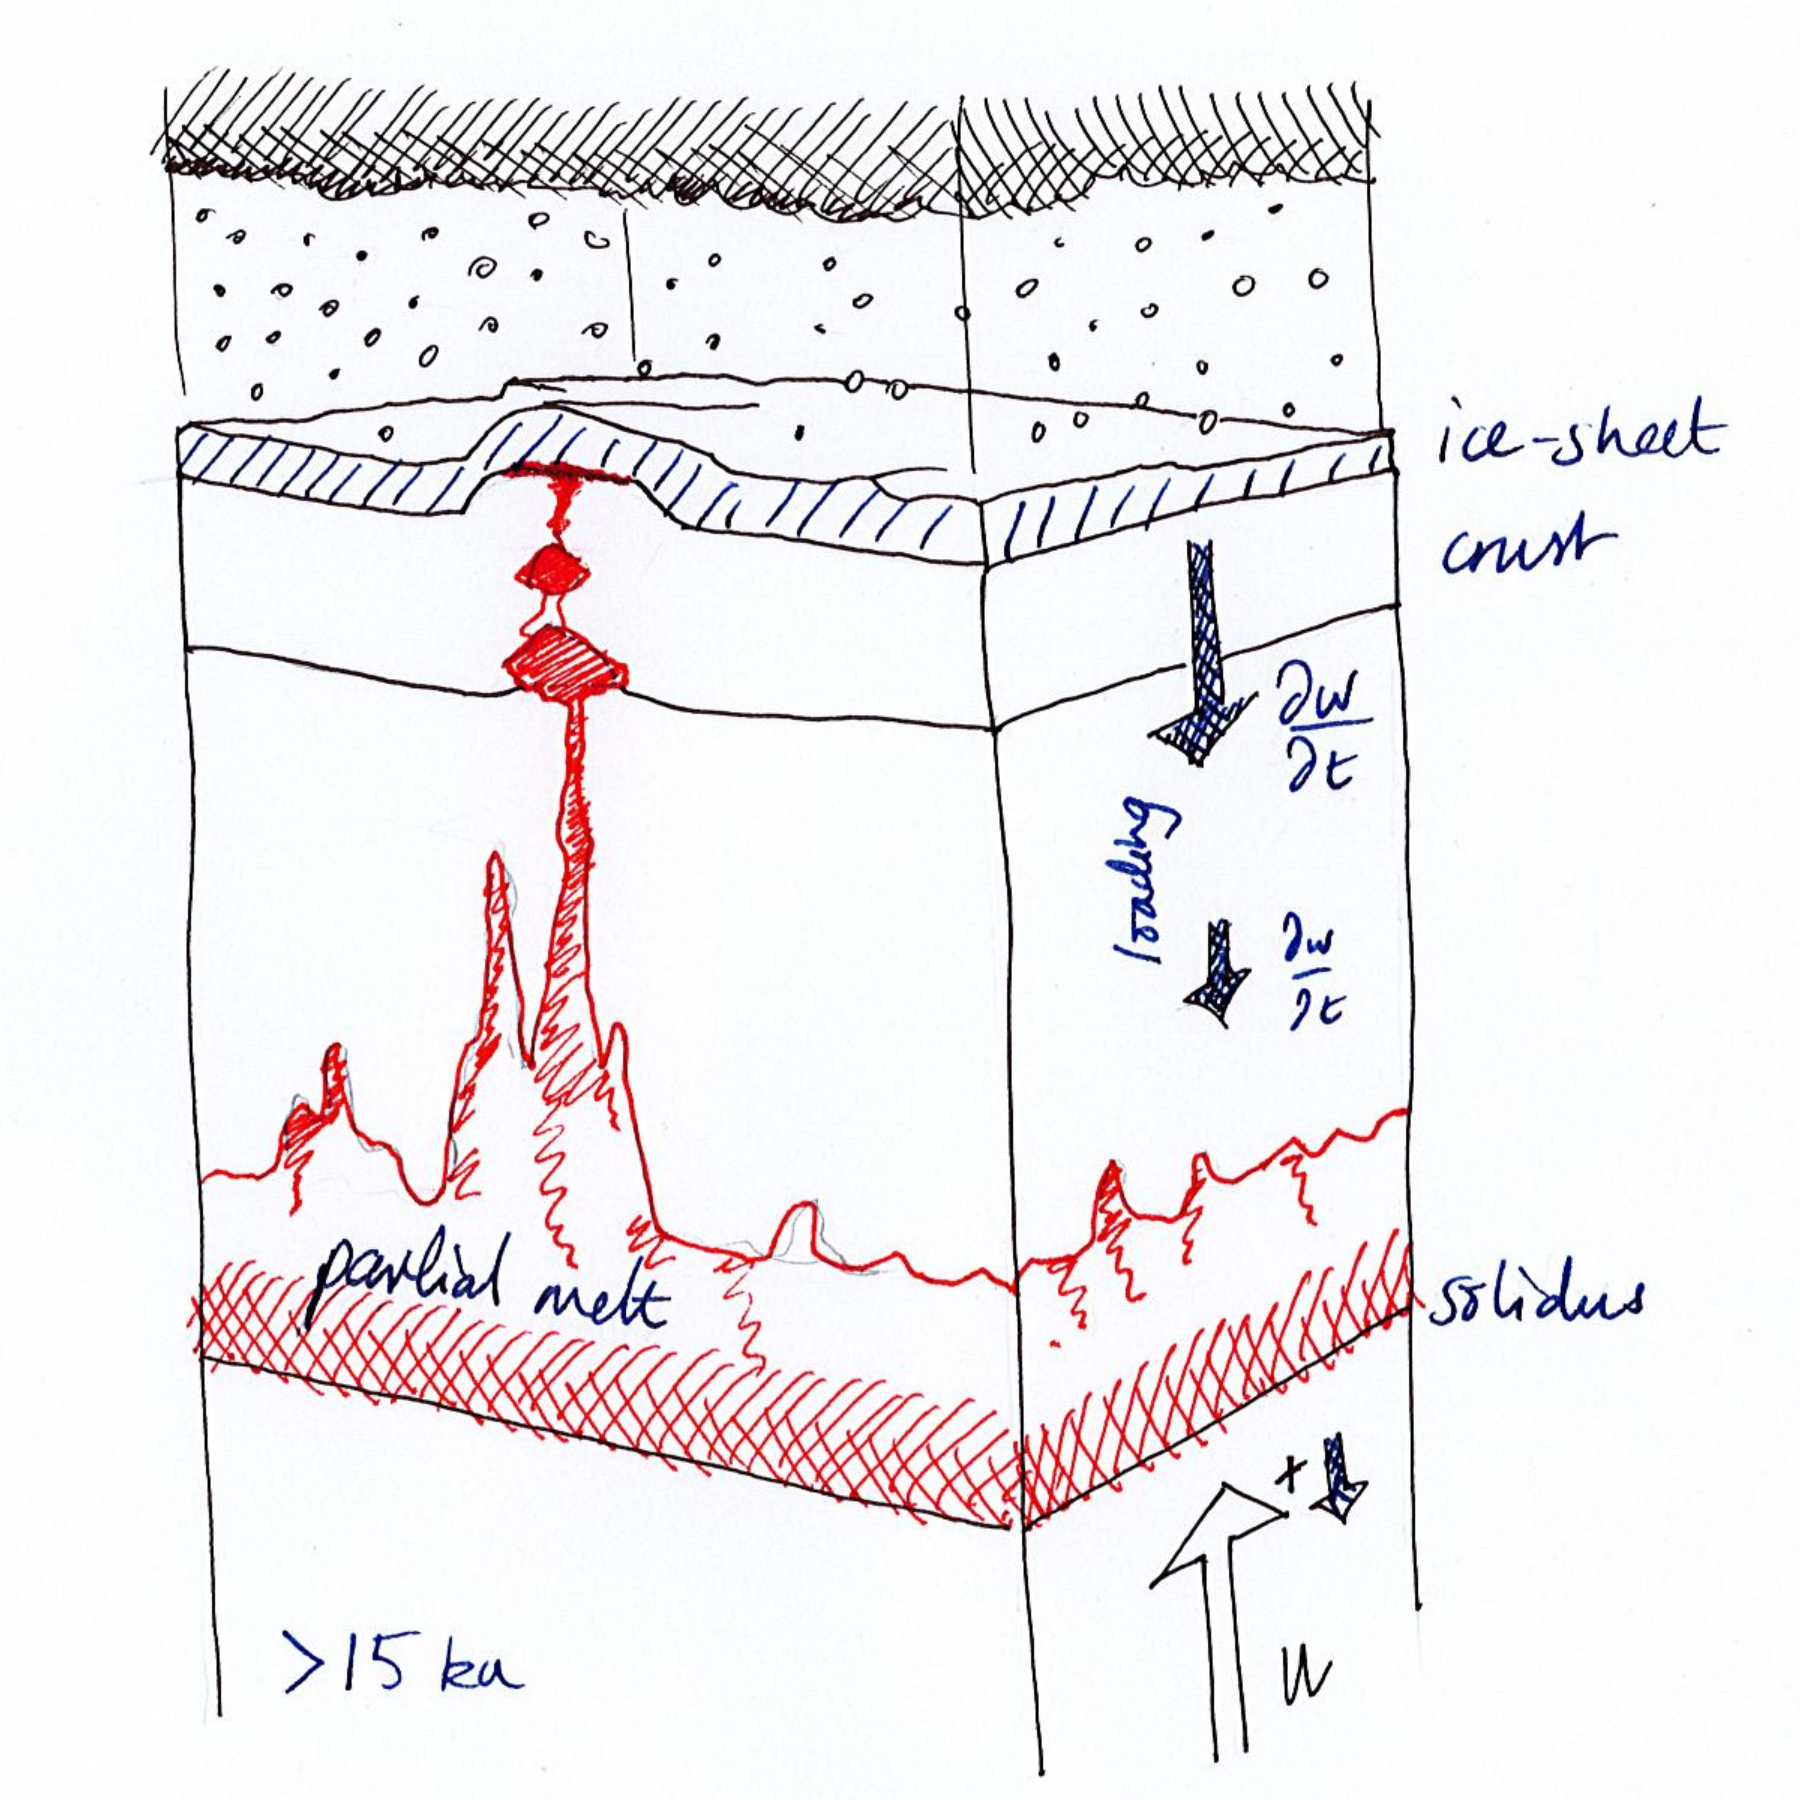 ice-sheet
crust
∂w
∂t
loading
∂w
∂t
partial melt
solidus
+
>15 ka
W